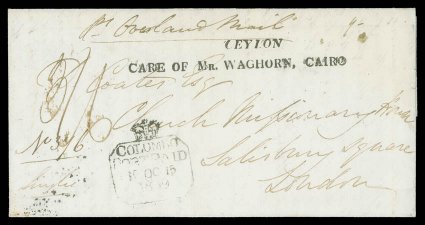 Pr Overland Mail
CEYLON
CARE OF MR. WAGHORN, CAIRO
Coates Esq
Church Missionary House
No 376
Salisbury Square
London
Single
COLUMBO
POST PAID
OC 15